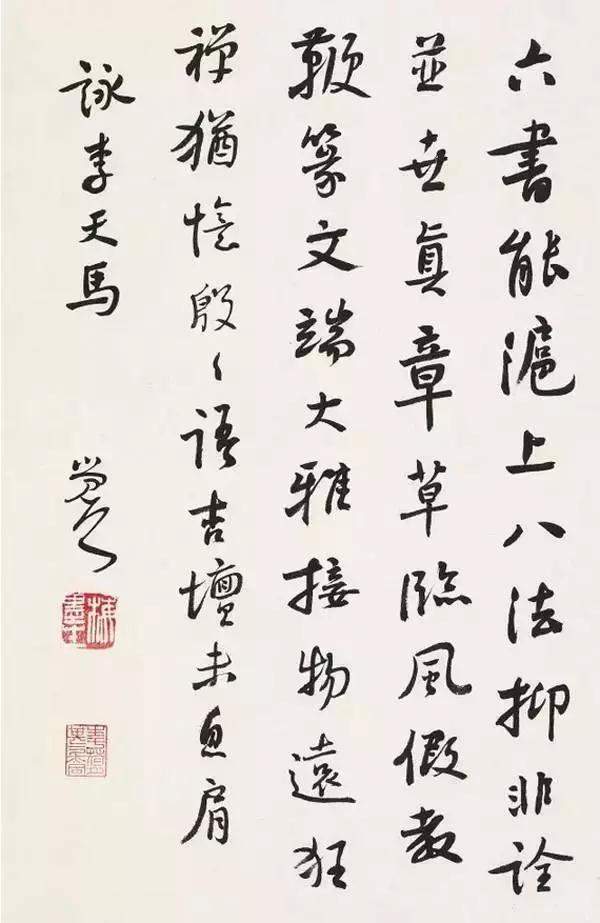 六書能滬上八法抑非詮
並世眞章草臨風假教
鞭篆文端大雅接物遠狂
禅猶憶殷〻語杏壇未息肩
詠李天馬